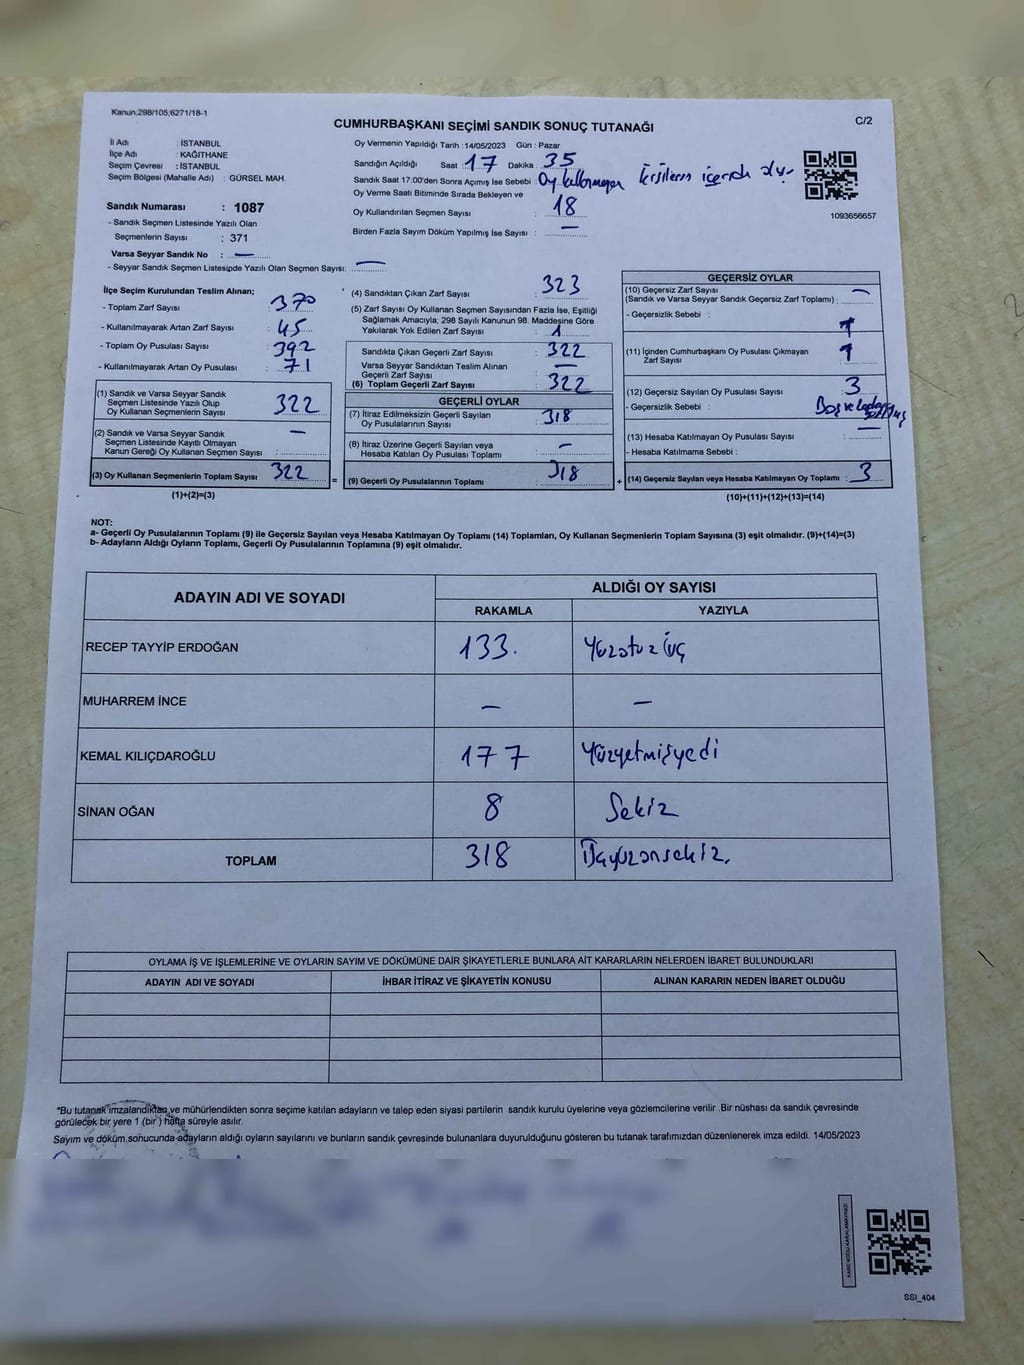 Kanun:298/105;6271/18-1
CUMHURBAŞKANI SEÇİMİ SANDIK SONUÇ TUTANAĞI
C/2
İl Adı : İSTANBUL
İlçe Adı : KAĞITHANE
Seçim Çevresi : İSTANBUL
Seçim Bölgesi (Mahalle Adı) : GÜRSEL MAH.
Sandık Numarası : 1087
- Sandık Seçmen Listesinde Yazılı Olan
Seçmenlerin Sayısı : 371
Varsa Seyyar Sandık No : —
- Seyyar Sandık Seçmen Listesinde Yazılı Olan Seçmen Sayısı: —
Oy Vermenin Yapıldığı Tarih : 14/05/2023 Gün : Pazar
Sandığın Açıldığı Saat : 17 Dakika : 35
Sandık Saat 17:00'den Sonra Açılmış İse Sebebi : Oy içeride
Oy Verme Saati Bitiminde Sırada Bekleyen ve
Oy Kullandırılan Seçmen Sayısı : 18
Birden Fazla Sayım Döküm Yapılmış İse Sayısı : —
1093656657
İlçe Seçim Kurulundan Teslim Alınan;
- Toplam Zarf Sayısı : 370
- Kullanılmayarak Artan Zarf Sayısı : 45
- Toplam Oy Pusulası Sayısı : 392
- Kullanılmayarak Artan Oy Pusulası : 71
(1) Sandık ve Varsa Seyyar Sandık
Seçmen Listesinde Yazılı Olup
Oy Kullanan Seçmenlerin Sayısı : 322
(2) Sandık ve Varsa Seyyar Sandık
Seçmen Listesinde Kayıtlı Olmayan
Kanun Gereği Oy Kullanan Seçmen Sayısı : —
(3) Oy Kullanan Seçmenlerin Toplam Sayısı : 322
(1)+(2)=(3)
=
(4) Sandıktan Çıkan Zarf Sayısı : 323
(5) Zarf Sayısı Oy Kullanan Seçmen Sayısından Fazla İse, Eşitliği
Sağlamak Amacıyla; 298 Sayılı Kanunun 98. Maddesine Göre
Yakılarak Yok Edilen Zarf Sayısı : 1
Sandıkta Çıkan Geçerli Zarf Sayısı : 322
Varsa Seyyar Sandıktan Teslim Alınan
Geçerli Zarf Sayısı : —
(6) Toplam Geçerli Zarf Sayısı : 322
GEÇERLİ OYLAR
(7) İtiraz Edilmeksizin Geçerli Sayılan
Oy Pusulalarının Sayısı : 318
(8) İtiraz Üzerine Geçerli Sayılan veya
Hesaba Katılan Oy Pusulası Toplamı : —
(9) Geçerli Oy Pusulalarının Toplamı : 318
+
GEÇERSİZ OYLAR
(10) Geçersiz Zarf Sayısı
(Sandık ve Varsa Seyyar Sandık Geçersiz Zarf Toplamı) : —
- Geçersizlik Sebebi :
(11) İçinden Cumhurbaşkanı Oy Pusulası Çıkmayan
Zarf Sayısı : 1
(12) Geçersiz Sayılan Oy Pusulası Sayısı : 3
- Geçersizlik Sebebi : Boş ve
(13) Hesaba Katılmayan Oy Pusulası Sayısı : —
- Hesaba Katılmama Sebebi :
(14) Geçersiz Sayılan veya Hesaba Katılmayan Oy Toplamı : 3
(10)+(11)+(12)+(13)=(14)
NOT:
a- Geçerli Oy Pusulalarının Toplamı (9) ile Geçersiz Sayılan veya Hesaba Katılmayan Oy Toplamı (14) Toplamları, Oy Kullanan Seçmenlerin Toplam Sayısına (3) eşit olmalıdır. (9)+(14)=(3)
b- Adayların Aldığı Oyların Toplamı, Geçerli Oy Pusulalarının Toplamına (9) eşit olmalıdır.
ADAYIN ADI VE SOYADI
ALDIĞI OY SAYISI
RAKAMLA YAZIYLA
RECEP TAYYİP ERDOĞAN 133. Yüzotuz üç
MUHARREM İNCE — —
KEMAL KILIÇDAROĞLU 177 Yüzyetmişyedi
SİNAN OĞAN 8 Sekiz
TOPLAM 318 Üçyüzonsekiz.
OYLAMA İŞ VE İŞLEMLERİNE VE OYLARIN SAYIM VE DÖKÜMÜNE DAİR ŞİKAYETLERLE BUNLARA AİT KARARLARIN NELERDEN İBARET BULUNDUKLARI
ADAYIN ADI VE SOYADI İHBAR İTİRAZ VE ŞİKAYETİN KONUSU ALINAN KARARIN NEDEN İBARET OLDUĞU
*Bu tutanak imzalandıktan ve mühürlendikten sonra seçime katılan adayların ve talep eden siyasi partilerin sandık kurulu üyelerine veya gözlemcilerine verilir .Bir nüshası da sandık çevresinde
görülecek bir yere 1 (bir ) hafta süreyle asılır.
Sayım ve döküm sonucunda adayların aldığı oyların sayılarını ve bunların sandık çevresinde bulunanlara duyurulduğunu gösteren bu tutanak tarafımızdan düzenlenerek imza edildi. 14/05/2023
KARE KODU KARALAMAYINIZ!
SSI_404